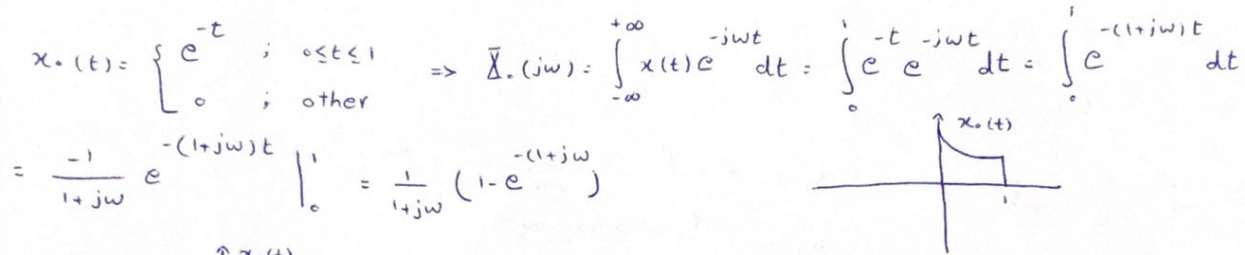 x₀(t) = { e^{-t} ; 0≤t≤1
0 ; other
=> X₀(jω) = ∫_{-∞}^{+∞} x(t) e^{-jωt} dt = ∫_0^1 e^{-t} e^{-jωt} dt = ∫_0^1 e^{-(1+jω)t} dt
= \frac{-1}{1+jω} e^{-(1+jω)t} |_0^1 = \frac{1}{1+jω} (1 - e^{-(1+jω})
x₀(t)
1